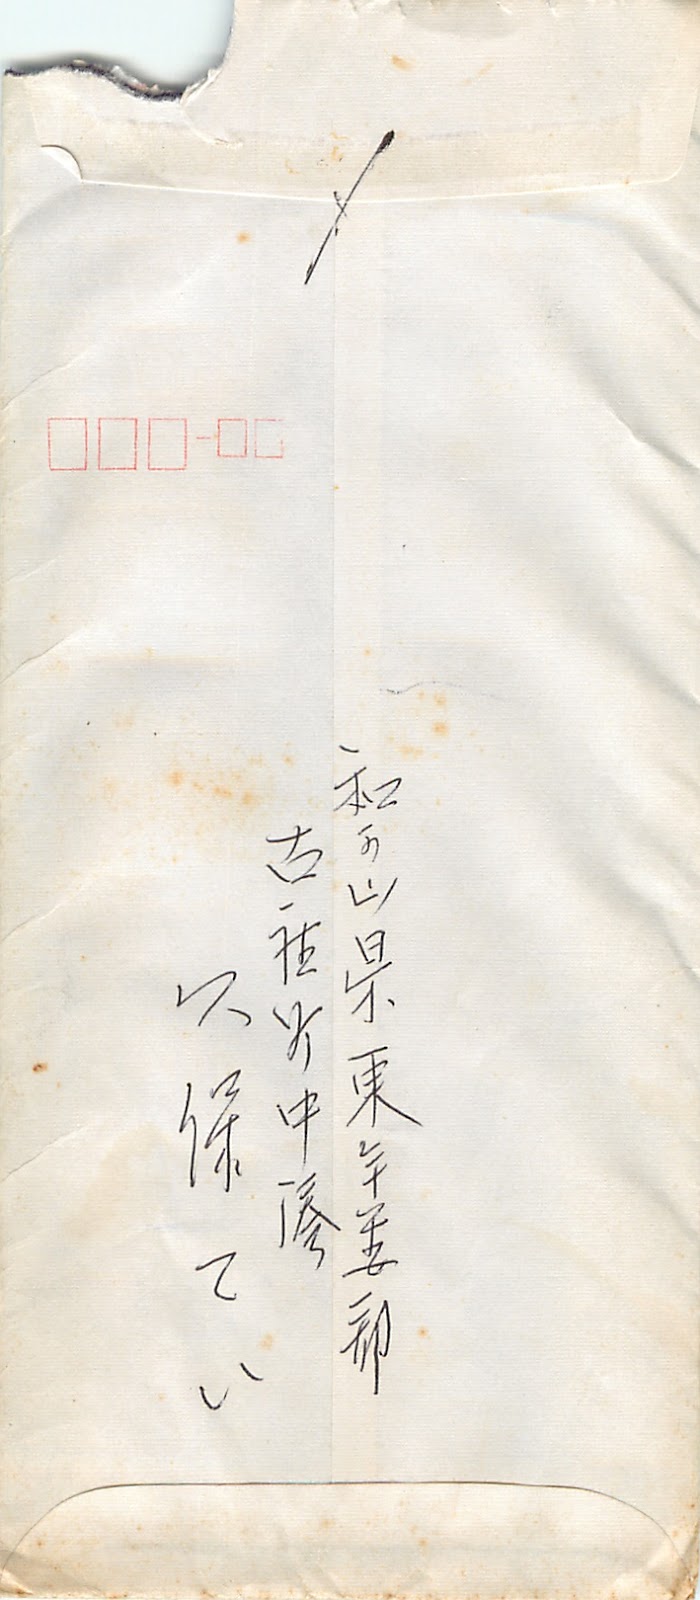 〆
和歌山県東牟婁郡
古座町中湊
久保てい